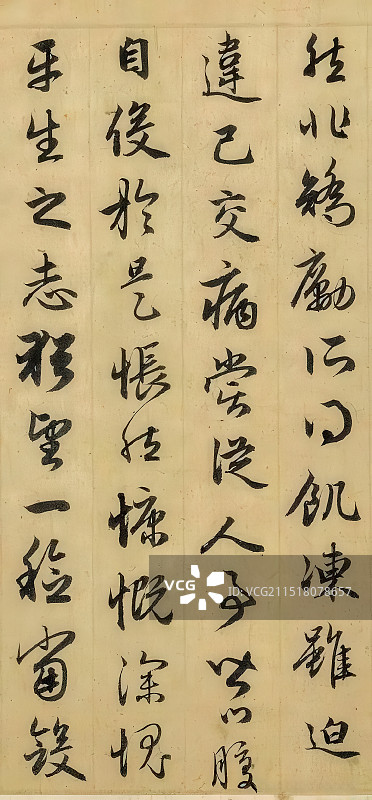 然非矯勵所得飢凍雖迫
違己交病嘗從人事皆口腹
自役於是悵然慷慨深愧
平生之志猶望一稔當斂
VCG
ID:VCG211518078657